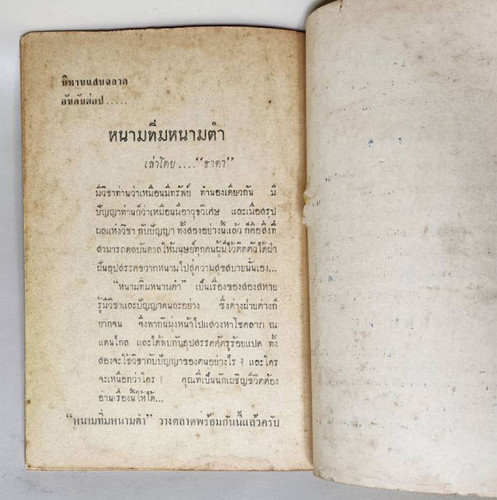 นิทานแสนฉลาด
อันดับต่อไป.....
หนามทิ่มหนามตำ
เล่าโดย...."ธาดา"
มีวิชาท่านว่าเหมือนมีทรัพย์ ทำนองเดียวกัน มี
ปัญญาท่านก็ว่าเหมือนมีอาวุธวิเศษ และเมื่อสรุป
ผลแห่งวิชา กับปัญญา ทั้งสองอย่างนี้แล้ว ก็คือสิ่งที่
สามารถดลบันดาลให้มนุษย์ทุกคนผู้มีไว้ติดตัวได้ฝ่า
ฟันอุปสรรคขวากหนามไปสู่ความสุขสบายนั่นเอง...
"หนามทิ่มหนามตำ" เป็นเรื่องของสองสหาย
รู้มีวิชาและปัญญาคนละอย่าง ซึ่งต่างฝ่ายต่างก็
ยากจน จึงพากันมุ่งหน้าไปแสวงหาโชคลาภ ณ
แดนไกล และได้พบกับอุปสรรคศัตรูร้อยแปด ทั้ง
สองจะใช้วิชากับปัญญาของตนอย่างไร ? และใคร
จะเหนือกว่าใคร ? คุณที่เป็นนักเผชิญชีวิตต้อง
อ่านเรื่องนี้ให้ได้...
"หนามทิ่มหนามตำ" วางตลาดพร้อมกันนี้แล้วครับ